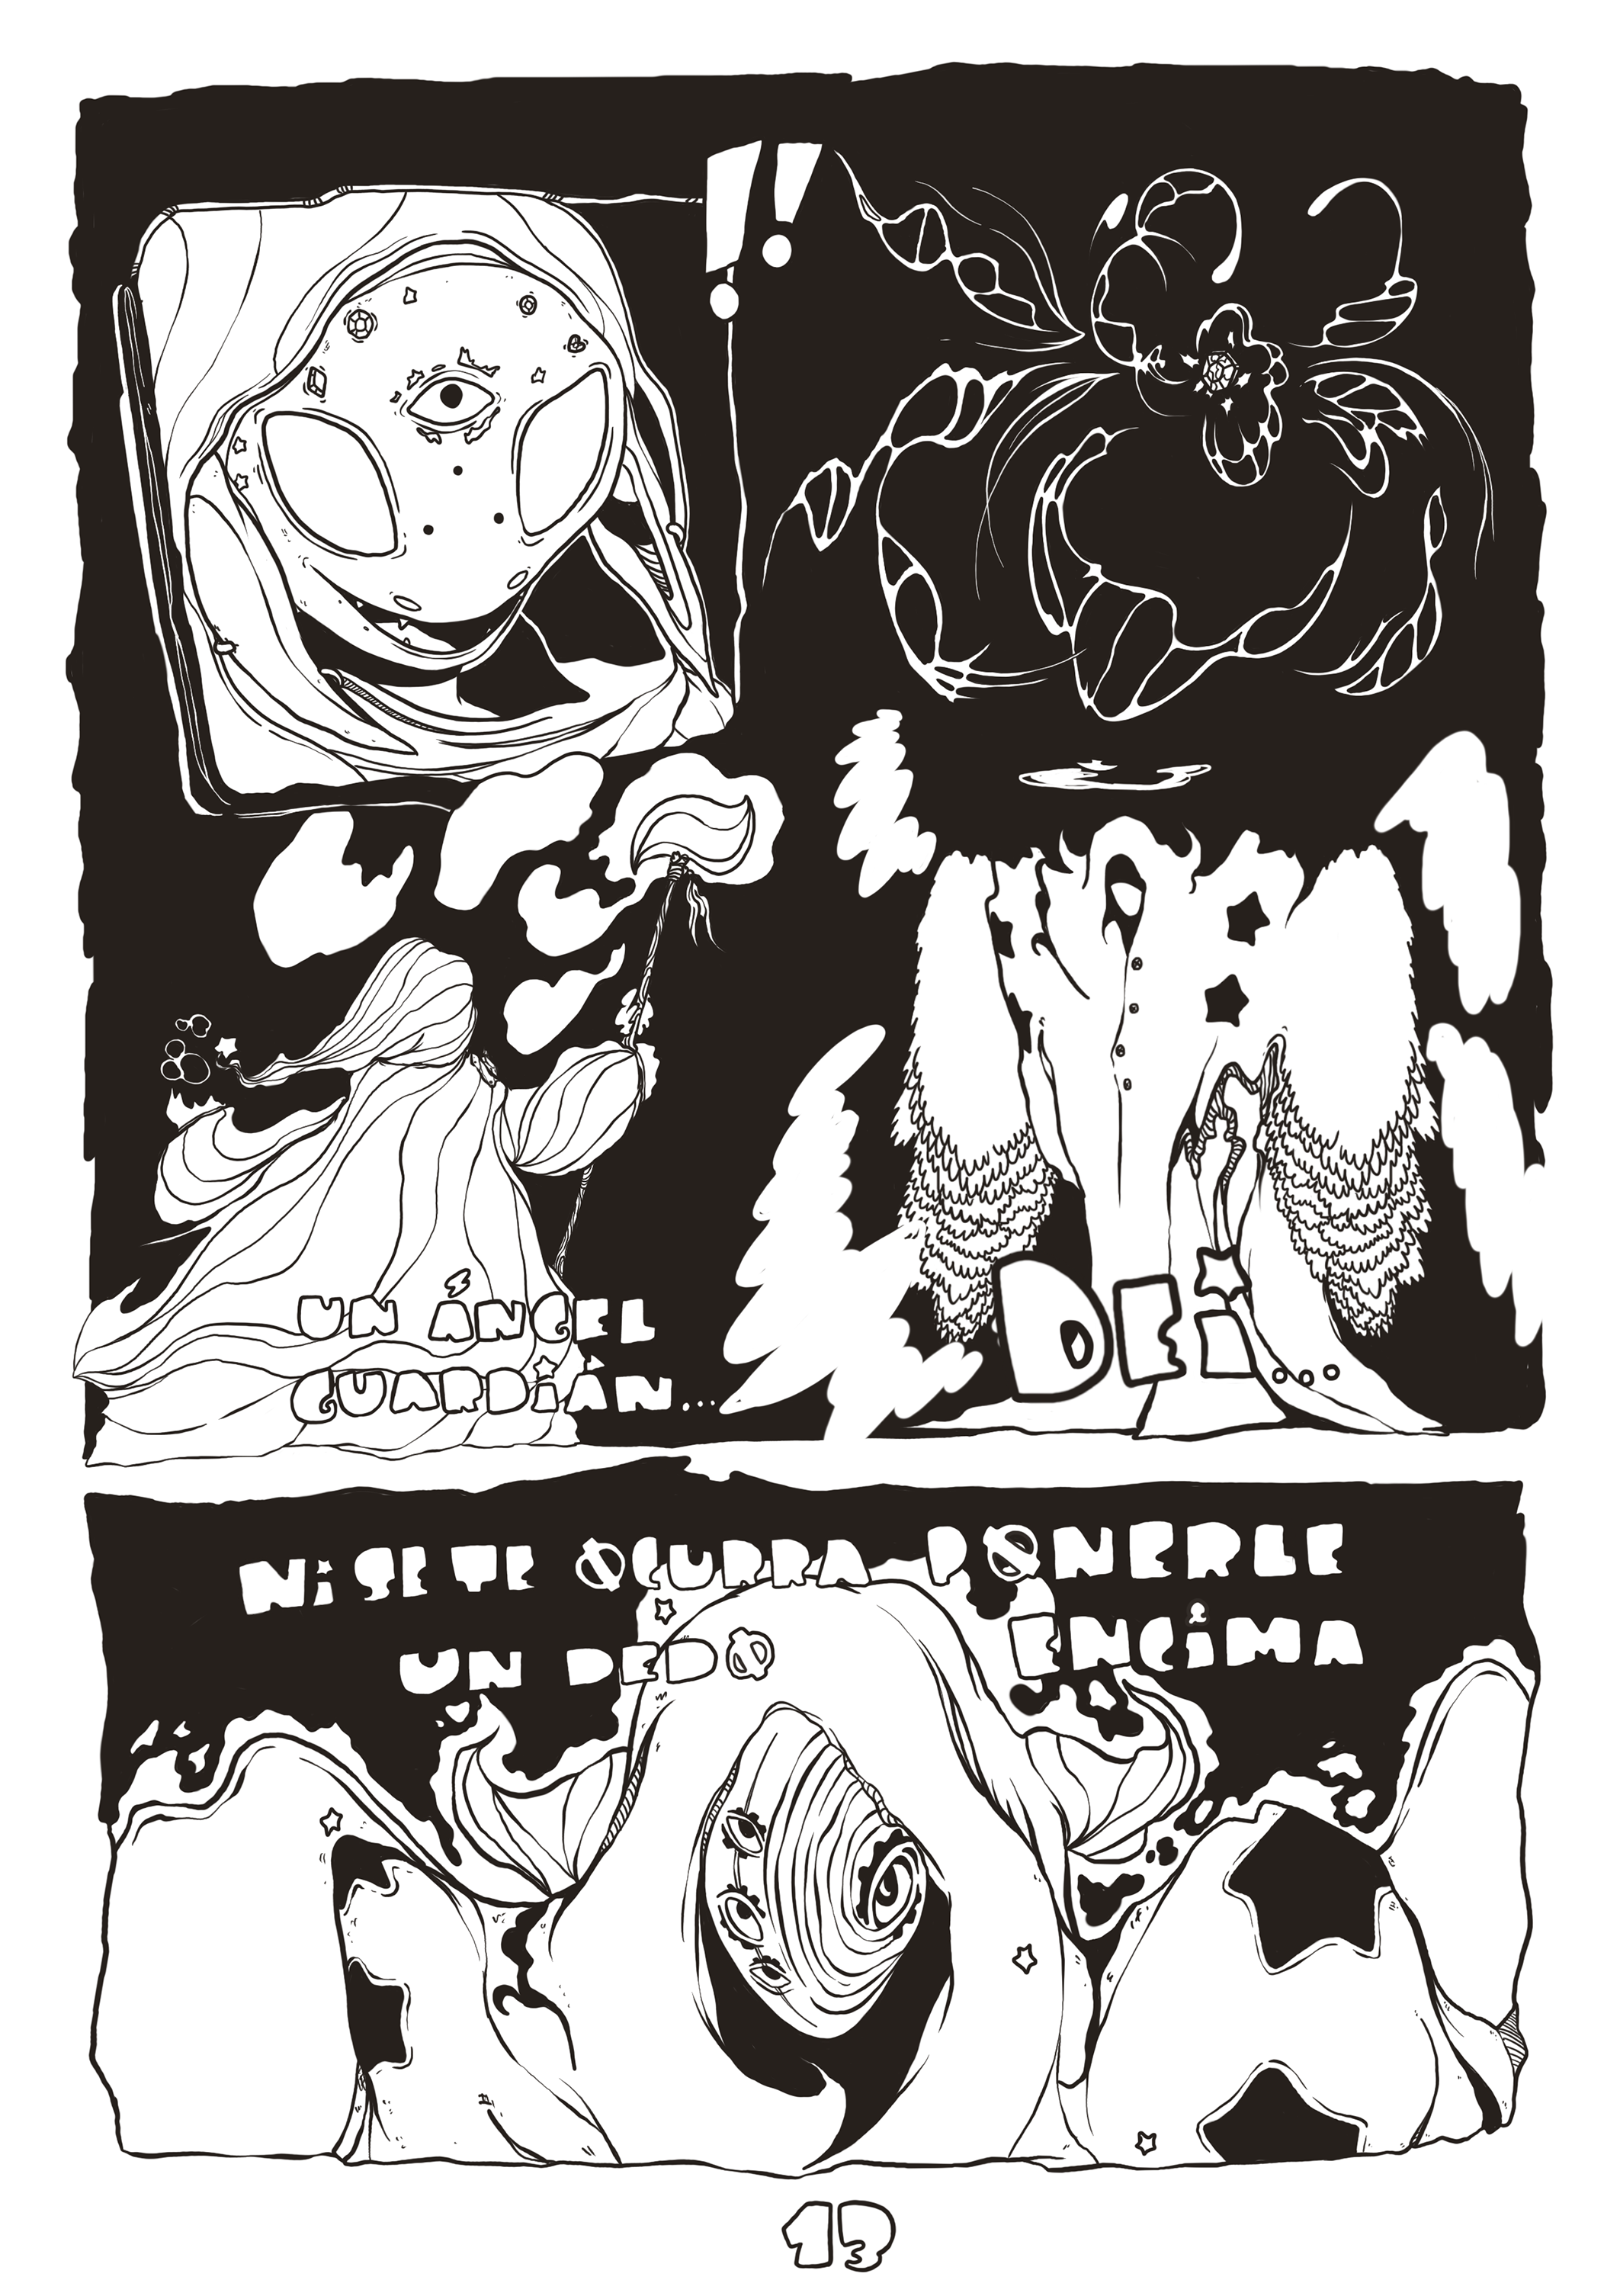 !!
UN ÁNGEL
GUARDiÁN...
DEi...
Ni SE TE OCURRA PONERLE
UN DEDO ENCiMA
13